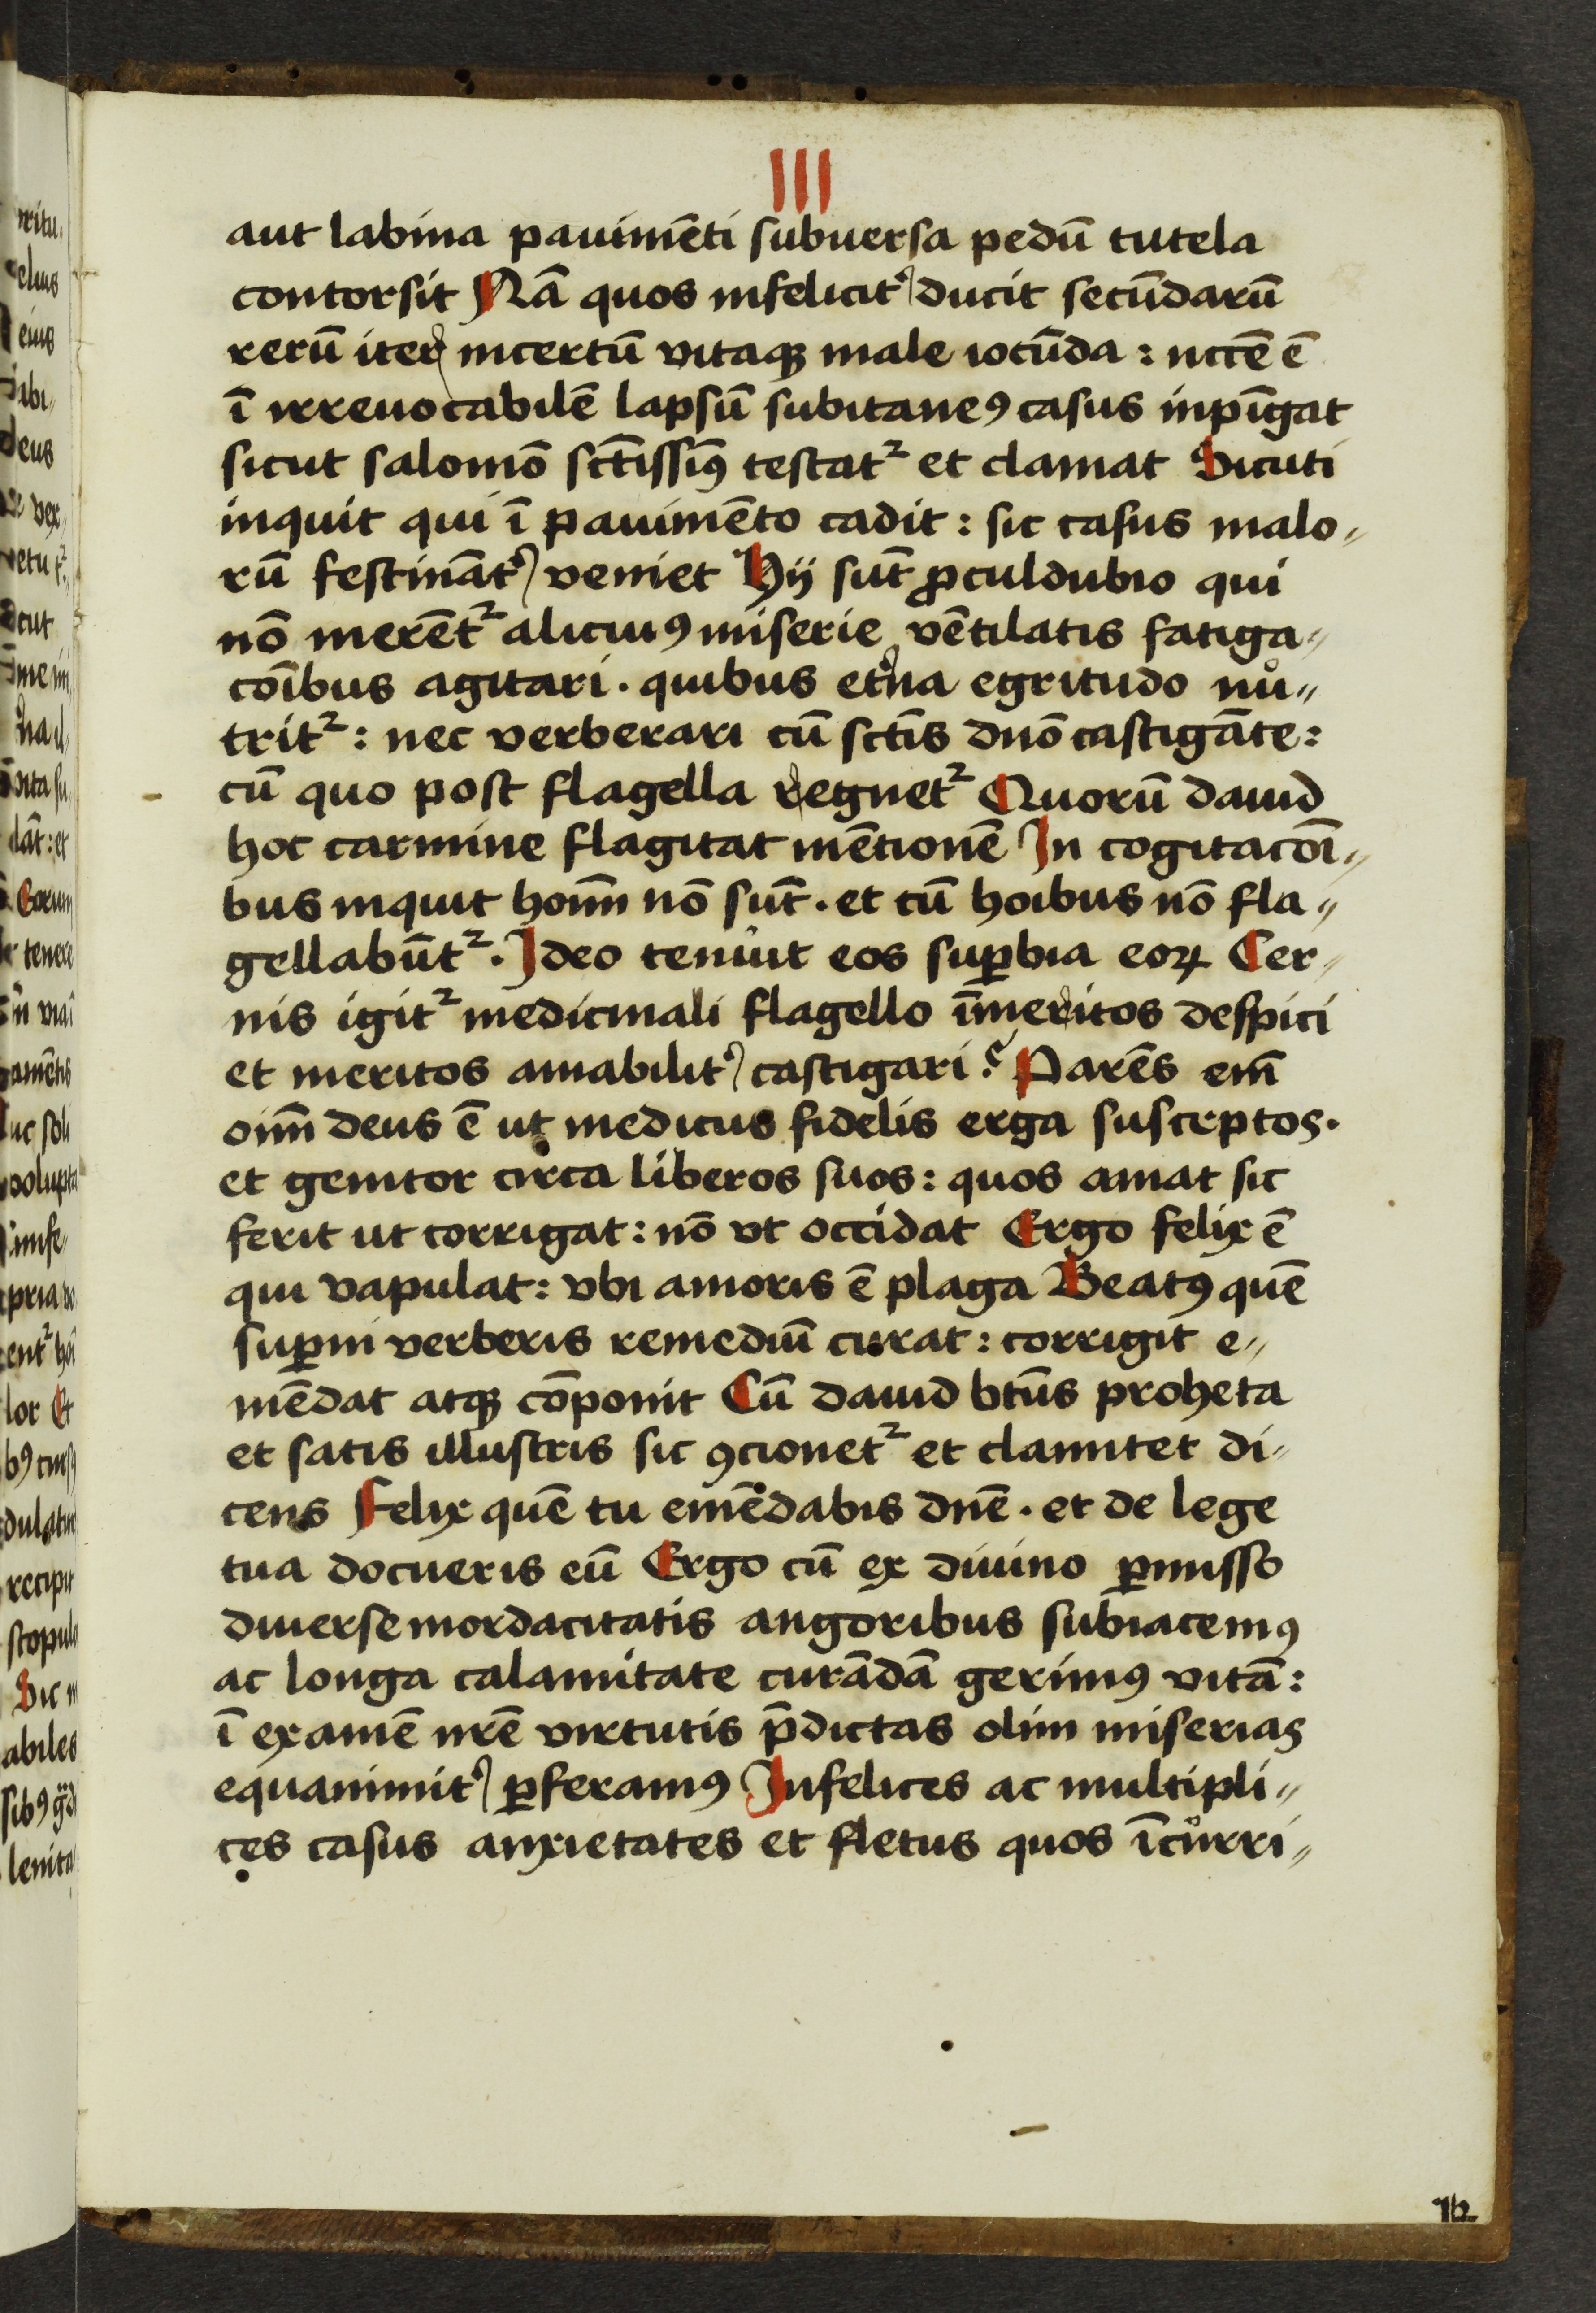 III
aut labina pauimēti subuersa pedū tutela
contorsit Nā quos infelicit᾽ ducit secūdarū
rerū iter incertū vitaqꝫ male iocūda : nccē ē
ī irreuocabilē lapsū subitaneꝰ casus inpīgat
sicut salomō sctīssimꝰ testat᷑ et clamat Sicuti
inquit qui ī pauimēto cadit : sic casus malo„
rū festināt᾽ veniet Hij sūt ꝓculdubio qui
nō merēt᷑ alicuiꝰ miserie vētilatis fatiga„
cōibus agitari . quibus et᾽na egritudo nů„
trit᷑ : nec verberari cū sctīs dnō castigāte :
cū quo post flagella regnet᷑ Quorū dauid
hoc carmine flagitat mētionē In cogitacōi„
bus inquit hoīm nō sūt . et cū hoībus nō fla„
gellabūt᷑ . Ideo tenuit eos suꝑbia eoꝝ Cer„
nis igit᷑ medicinali flagello īmeritos despici
et meritos amabilit᾽ castigari ? Parēs em̄
oīm deus ē ut medicus fidelis erga susceptos .
et genitor circa liberos suos : quos amat sic
ferit ut corrigat : nō vt occidat Ergo felix ē
qui vapulat : vbi amoris ē plaga Beatꝰ quē
suꝑni verberis remediū curat : corrigit e„
mēdat atqꝫ cōponit Cū dauid btūs proheta
et satis illustris sic ꝯcionet᷑ et clamitet di„
cens Felix quē tu emēdabis dnē . et de lege
tua docueris eū Ergo cū ex diuino ꝑmisso
diuerse mordacitatis angoribus subiacemꝰ
ac longa calamitate curādā gerimꝰ vitā :
ī examē nrē virtutis p̄dictas olim miserias
equanimit᾽ ꝑferamꝰ Infelices ac multipli„
ces casus anxietates et fletus quos īcůrri„
12